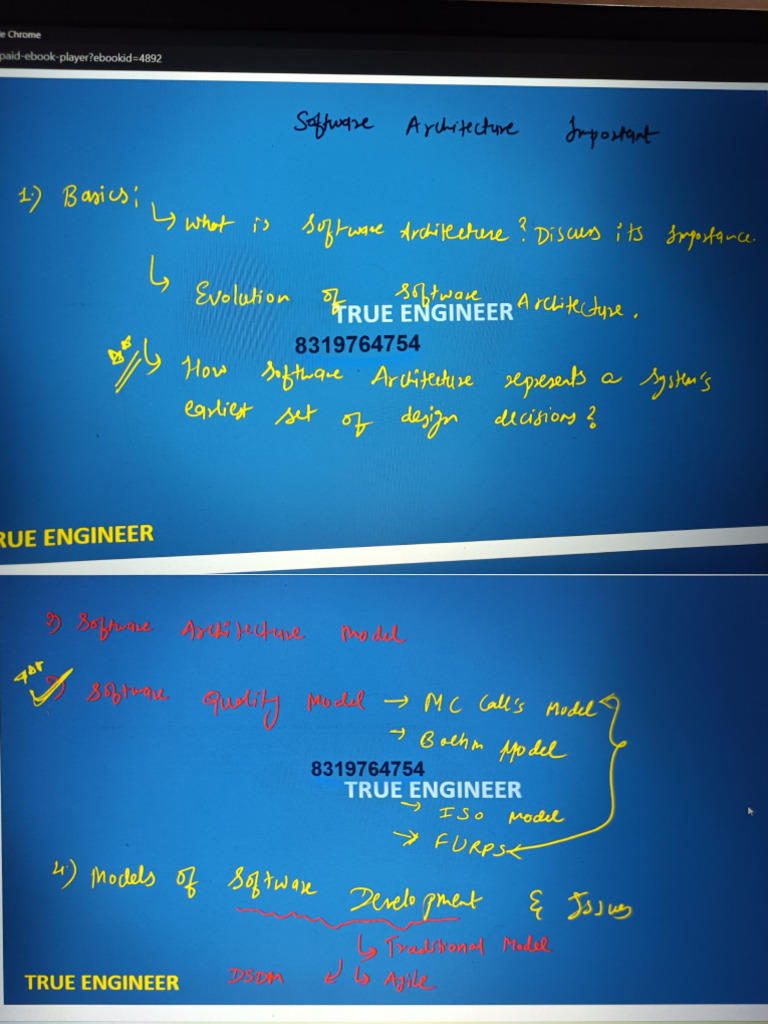 e Chrome
paid-ebook-player?ebookid=4892
Software Architecture Important
1.) Basics:
↳ What is Software Architecture? Discuss its Importance.
↳ Evolution of Software Architecture.
TRUE ENGINEER
8319764754
↳ How Software Architecture represents a system's
earliest set of design decisions?
RUE ENGINEER
2) Software Architecture Model
3) Software Quality Model → MC Call's Model
→ Boehm Model
8319764754
TRUE ENGINEER
→ ISO Model
→ FURPS
4.) Models of Software Development & Issues
↳ Traditional Model
DSDM ↙ ↳ Agile
TRUE ENGINEER